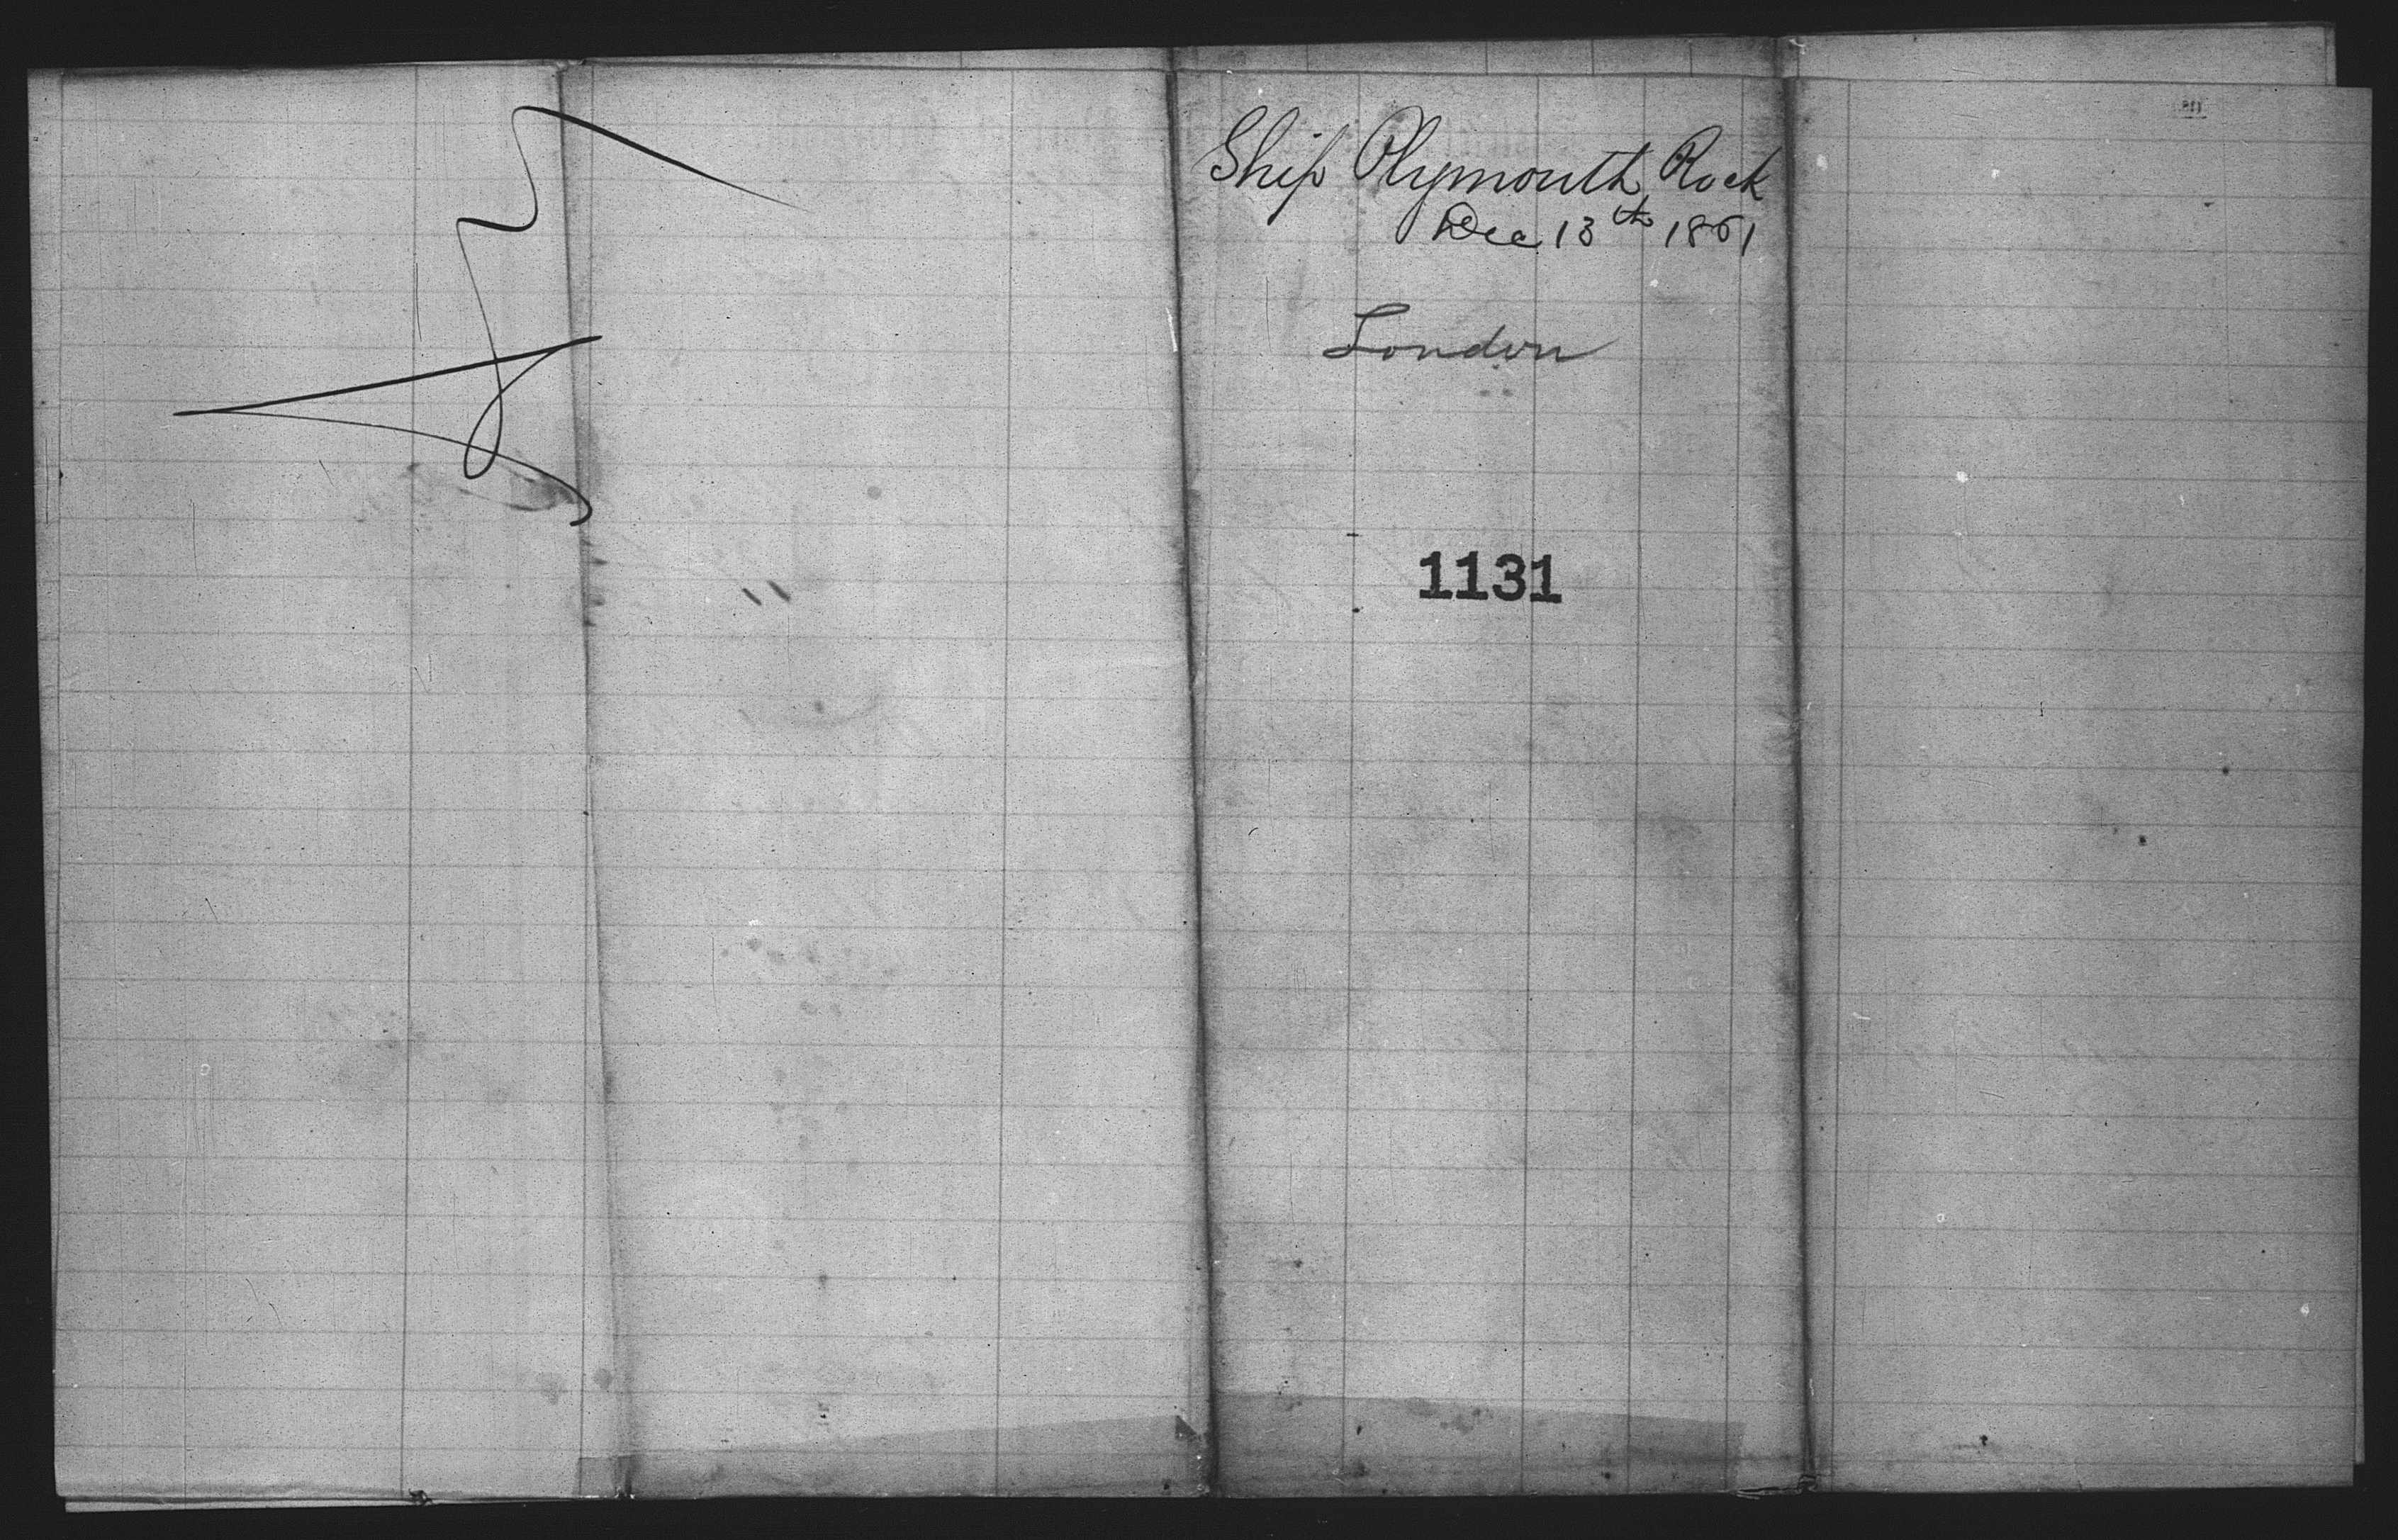 Ship Plymouth Rock
Dec 13th 1861
London
1131